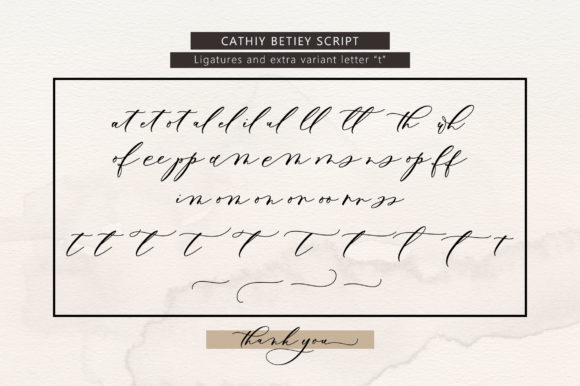 CATHIY BETIEY SCRIPT
Ligatures and extra variant letter "t"
at et ot al el il ul ll tt th wh
of ee pp am em m ms ns op ff
im om on or oo rr rs
t t t t t t t t t t
thank you